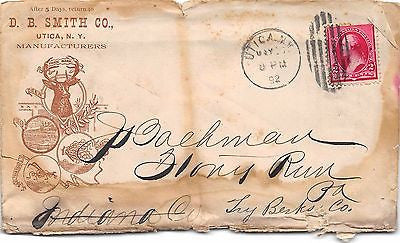 After 5 Days, return to
D. B. SMITH CO.,
UTICA, N. Y.
MANUFACTURERS
UTICA, N.Y.
8 PM
92
J Bachman
Stony Run
Pa
Indiana Co Try Berks. Co.